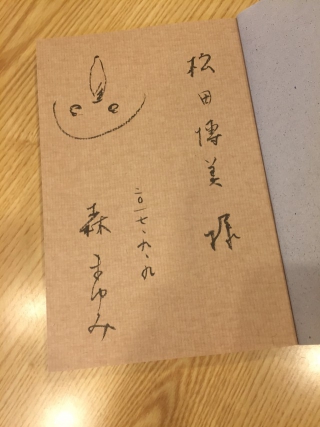 松田博美様
二〇一七、九、九
森まゆみ